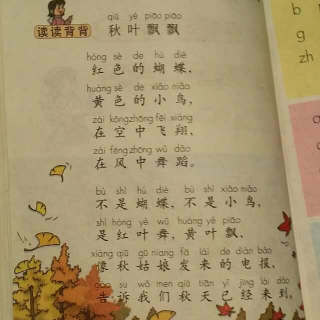 qiū yè piāo piāo
读读背背 秋叶飘飘
hóng sè de hú dié
红色的蝴蝶，
huáng sè de xiǎo niǎo
黄色的小鸟，
zài kōng zhōng fēi xiáng
在空中飞翔，
zài fēng zhōng wǔ dǎo
在风中舞蹈。
bú shì hú dié bú shì xiǎo niǎo
不是蝴蝶，不是小鸟，
shì hóng yè wǔ huáng yè piāo
是红叶舞，黄叶飘，
xiàng qiū gū niang fā lái de diàn bào
像秋姑娘发来的电报，
gào su wǒ men qiū tiān yǐ jīng lái dào
告诉我们秋天已经来到。
b
g
zh